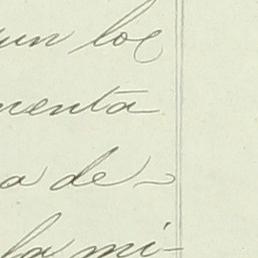 un loc
menta
a de-
la mi-